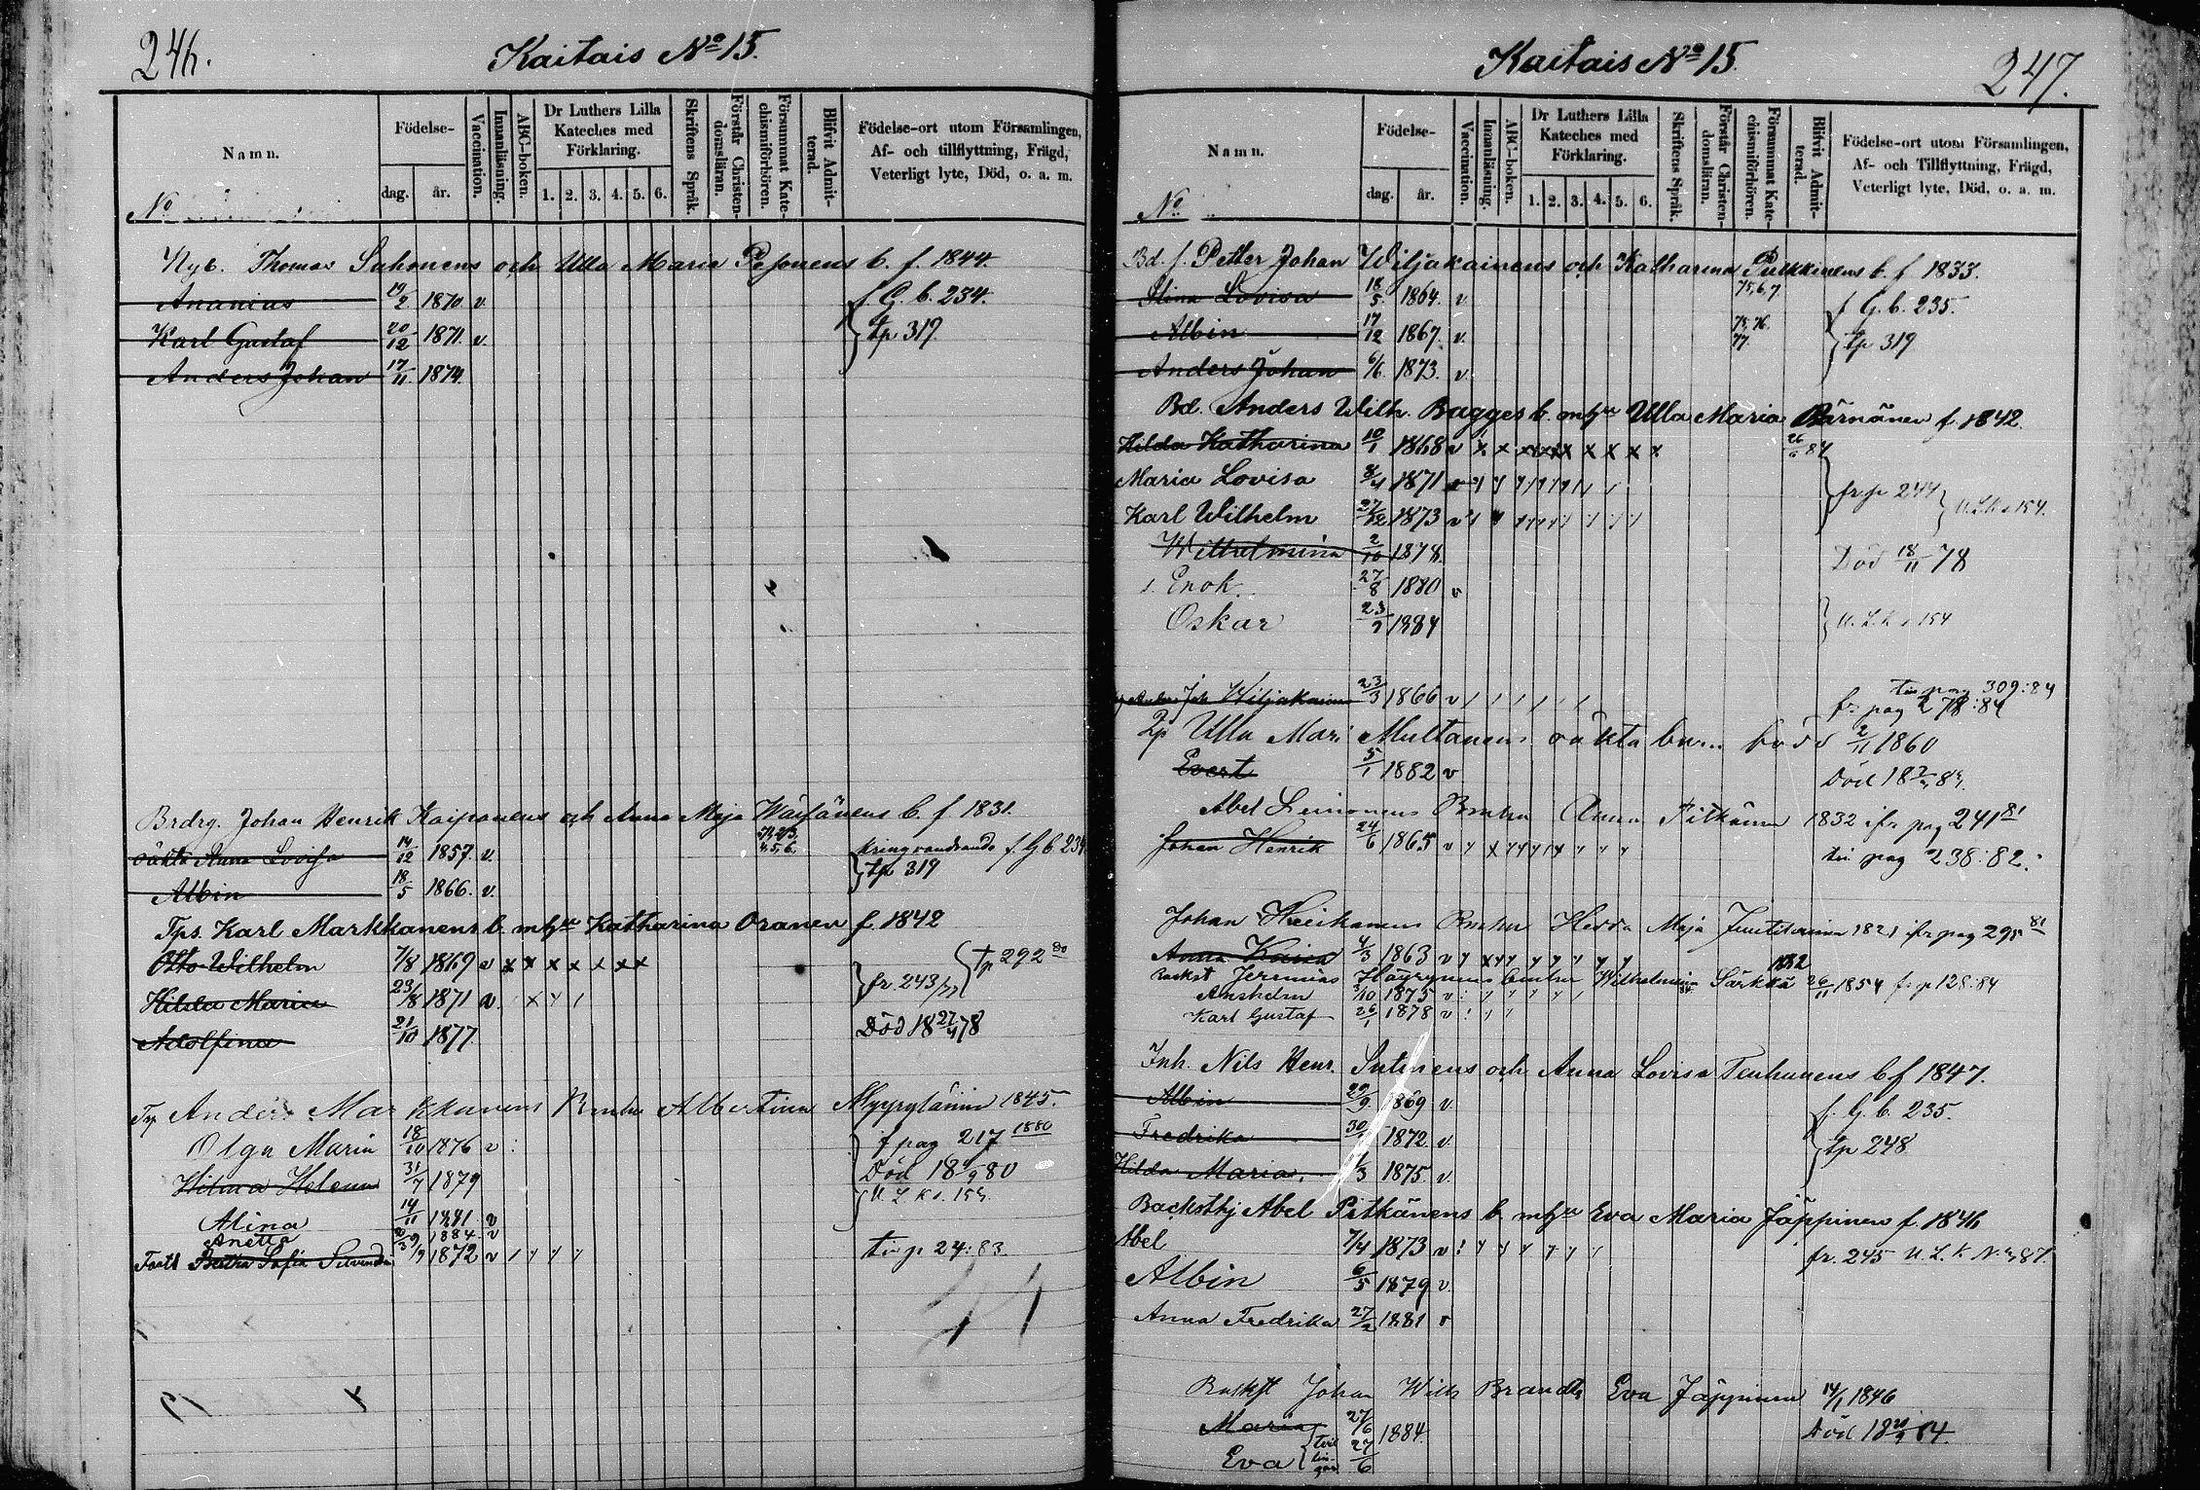 246.
Kaitais No 15.
Namn.
No
Födelse-
dag.
år.
Vaccination.
Innanläsning.
ABC-boken.
Dr Luthers Lilla Kateches med Förklaring.
1. 2. 3. 4. 5. 6.
Skriftens Språk.
Förstår Christendomsläran.
Försummat Katechismiförhören.
Blifvit Admitterad.
Födelse-ort utom Församlingen, Af- och tillflyttning, Frägd, Veterligt lyte, Död, o. a. m.
Nyb. Thomas Suhonens och Ulla Maria Pesonens b. f. 1844.
Ananias 19/2 1870 v. f. G. b. 234.
Karl Gustaf 20/12 1871. v. tp 319
Anders Johan 17/11 1874.
Brdrg. Johan Henrik Kaipanens och Anna Maja Wäisänens b. f 1831.
oäkta Anna Lovisa 14/12 1857. v. kringvandrande f. G. b 234
Albin 18/5 1866. v. tp 319
Tps. Karl Markkanens b. m hu Katharina Oranen f. 1842
Otto Wilhelm 7/8 1869 v x x x x x x x fr. 243/77 tp 292 80
Hilda Maria 23/8 1871 v. x
Adolfina 21/10 1877 Död 18 27/4 78
Tp Anders Markkanens Bmhu Albertina Myyryläinin 1845.
Olga Maria 18/10 1876 v f pag 217 1880
Hilma Helena 31/7 1879 Död 18 80
Alina 14/11 1881 v U L K s. 154.
Anetta 1884 v
1872 v tin p 24:83.
247.
Kaitais No 15
Namn.
No
Födelse-
dag.
år.
Vaccination.
Innanläsning.
ABC-boken.
Dr Luthers Lilla Kateches med Förklaring.
1. 2. 3. 4. 5. 6.
Skriftens Språk.
Förstår Christendomsläran.
Försummat Katechismiförhören.
Blifvit Admitterad.
Födelse-ort utom Församlingen, Af- och Tillflyttning, Frägd, Veterligt lyte, Död, o. a. m.
Bd. f. Petter Johan Wiljakainens och Katharina Pulkkinens b. f 1833.
Lovisa 18/5 1864. v. 75,6,7 f G. b. 235.
Albin 17/12 1867. v. 75,76. 77. tp 319
Anders Johan 6/6 1873. v.
Bd. Anders Wilh. Bagges b. m hu Ulla Maria Pärnänen f. 1842.
Hilda Katharina 10/1 1868 v x x x x x x x x x 26/6 84
Maria Lovisa 8/4 1871 v fr. p 244 U. L. K s 154.
Karl Wilhelm 27/12 1873 v
Wilhelmina 2/10 1878. Död 18/11 78
Enok. 27/8 1880 v
Oskar 23/2 1884 U. L. K s 154
Joh Wiljakainen 23/3 1866 v tin pag 309:84
fr pag 278:84
Tp Ulla Mari Multanens oäkta barn född 2/11 1860
Evert 5/1 1882 v Död 18
Abel Bmhu Anna Pitkänin 1832 ifr pag 241 81
Johan Henrik 24/6 1865 v tin pag 238:82.
Johan Heiskanens Bmhu Hedda Maja 1821 ifr pag 295 81
Anna Kaisa 4/3 1863 v
Backst Jeremias Häyrynens bmhu Wilhelmina Särkkä 26/11 1854 fr p 128:84
Anshelm 3/10 1875 v
Karl Gustaf 26/1 1878 v
Inh. Nils Henr. Sutinens och Anna Lovisa Tenhunens b f 1847.
Albin 29/9. 1869 v. f. G. b. 235.
Fredrika 30/ 1872. v. tp 248
Hilda Maria. /3 1875. v.
Backsthj Abel Pitkänens b. m hu Eva Maria Jäppinen f. 1846
Abel 7/4 1873 v fr. 245 U. L. K.
Albin 6/5 1879 v.
Anna Fredrika 27/2 1881 v
Backst Johan Wilh Brandts Eva Jäppinen 14/1 1846
Maria 27/6 1884. Död 18 84.
Eva tvillingar 27/6